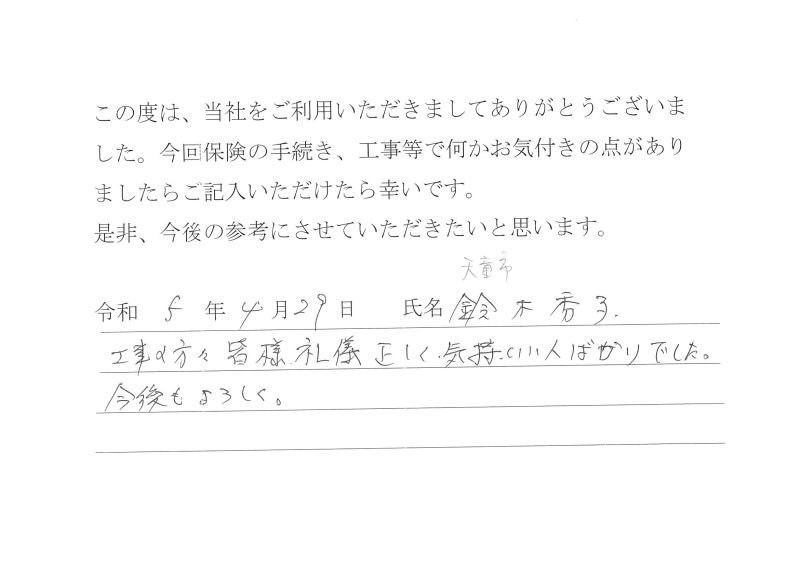 この度は、当社をご利用いただきましてありがとうございま
した。今回保険の手続き、工事等で何かお気付きの点があり
ましたらご記入いただけたら幸いです。
是非、今後の参考にさせていただきたいと思います。
天童市
令和 5 年 4月29日 氏名 鈴木秀子.
工事の方々皆様礼儀正しく気持いい人ばかりでした。
今後もよろしく。